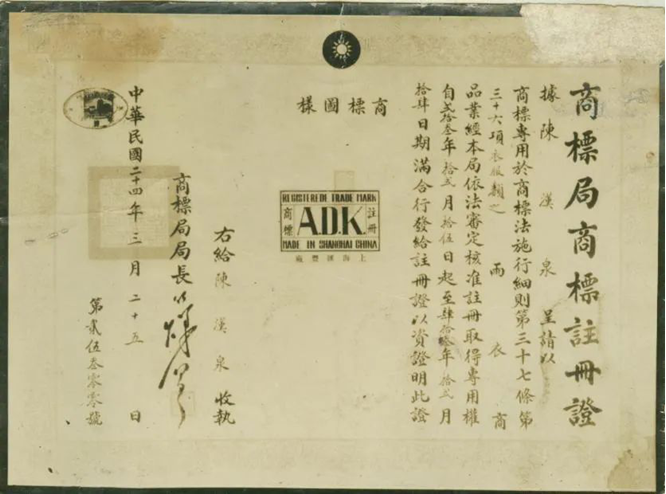 商標局商標註冊證
據陳漢泉呈請以
商標專用於商標法施行細則第三十七條第
三十六項衣服類之雨衣商
品業經本局依法審定核准註冊取得專用權
自貳拾叁年拾貳月拾伍日起至肆拾叁年拾貳月
拾肆日期滿合行發給註冊證以資證明此證
商標圖樣
REGISTEREDE TRADE MARK
商標
A.D.K.
註冊
MADE IN SHANGHAI CHINA
上海
右給陳漢泉收執
商標局局長
中華民國二十四年三月二十五日
第貳伍叁零零號